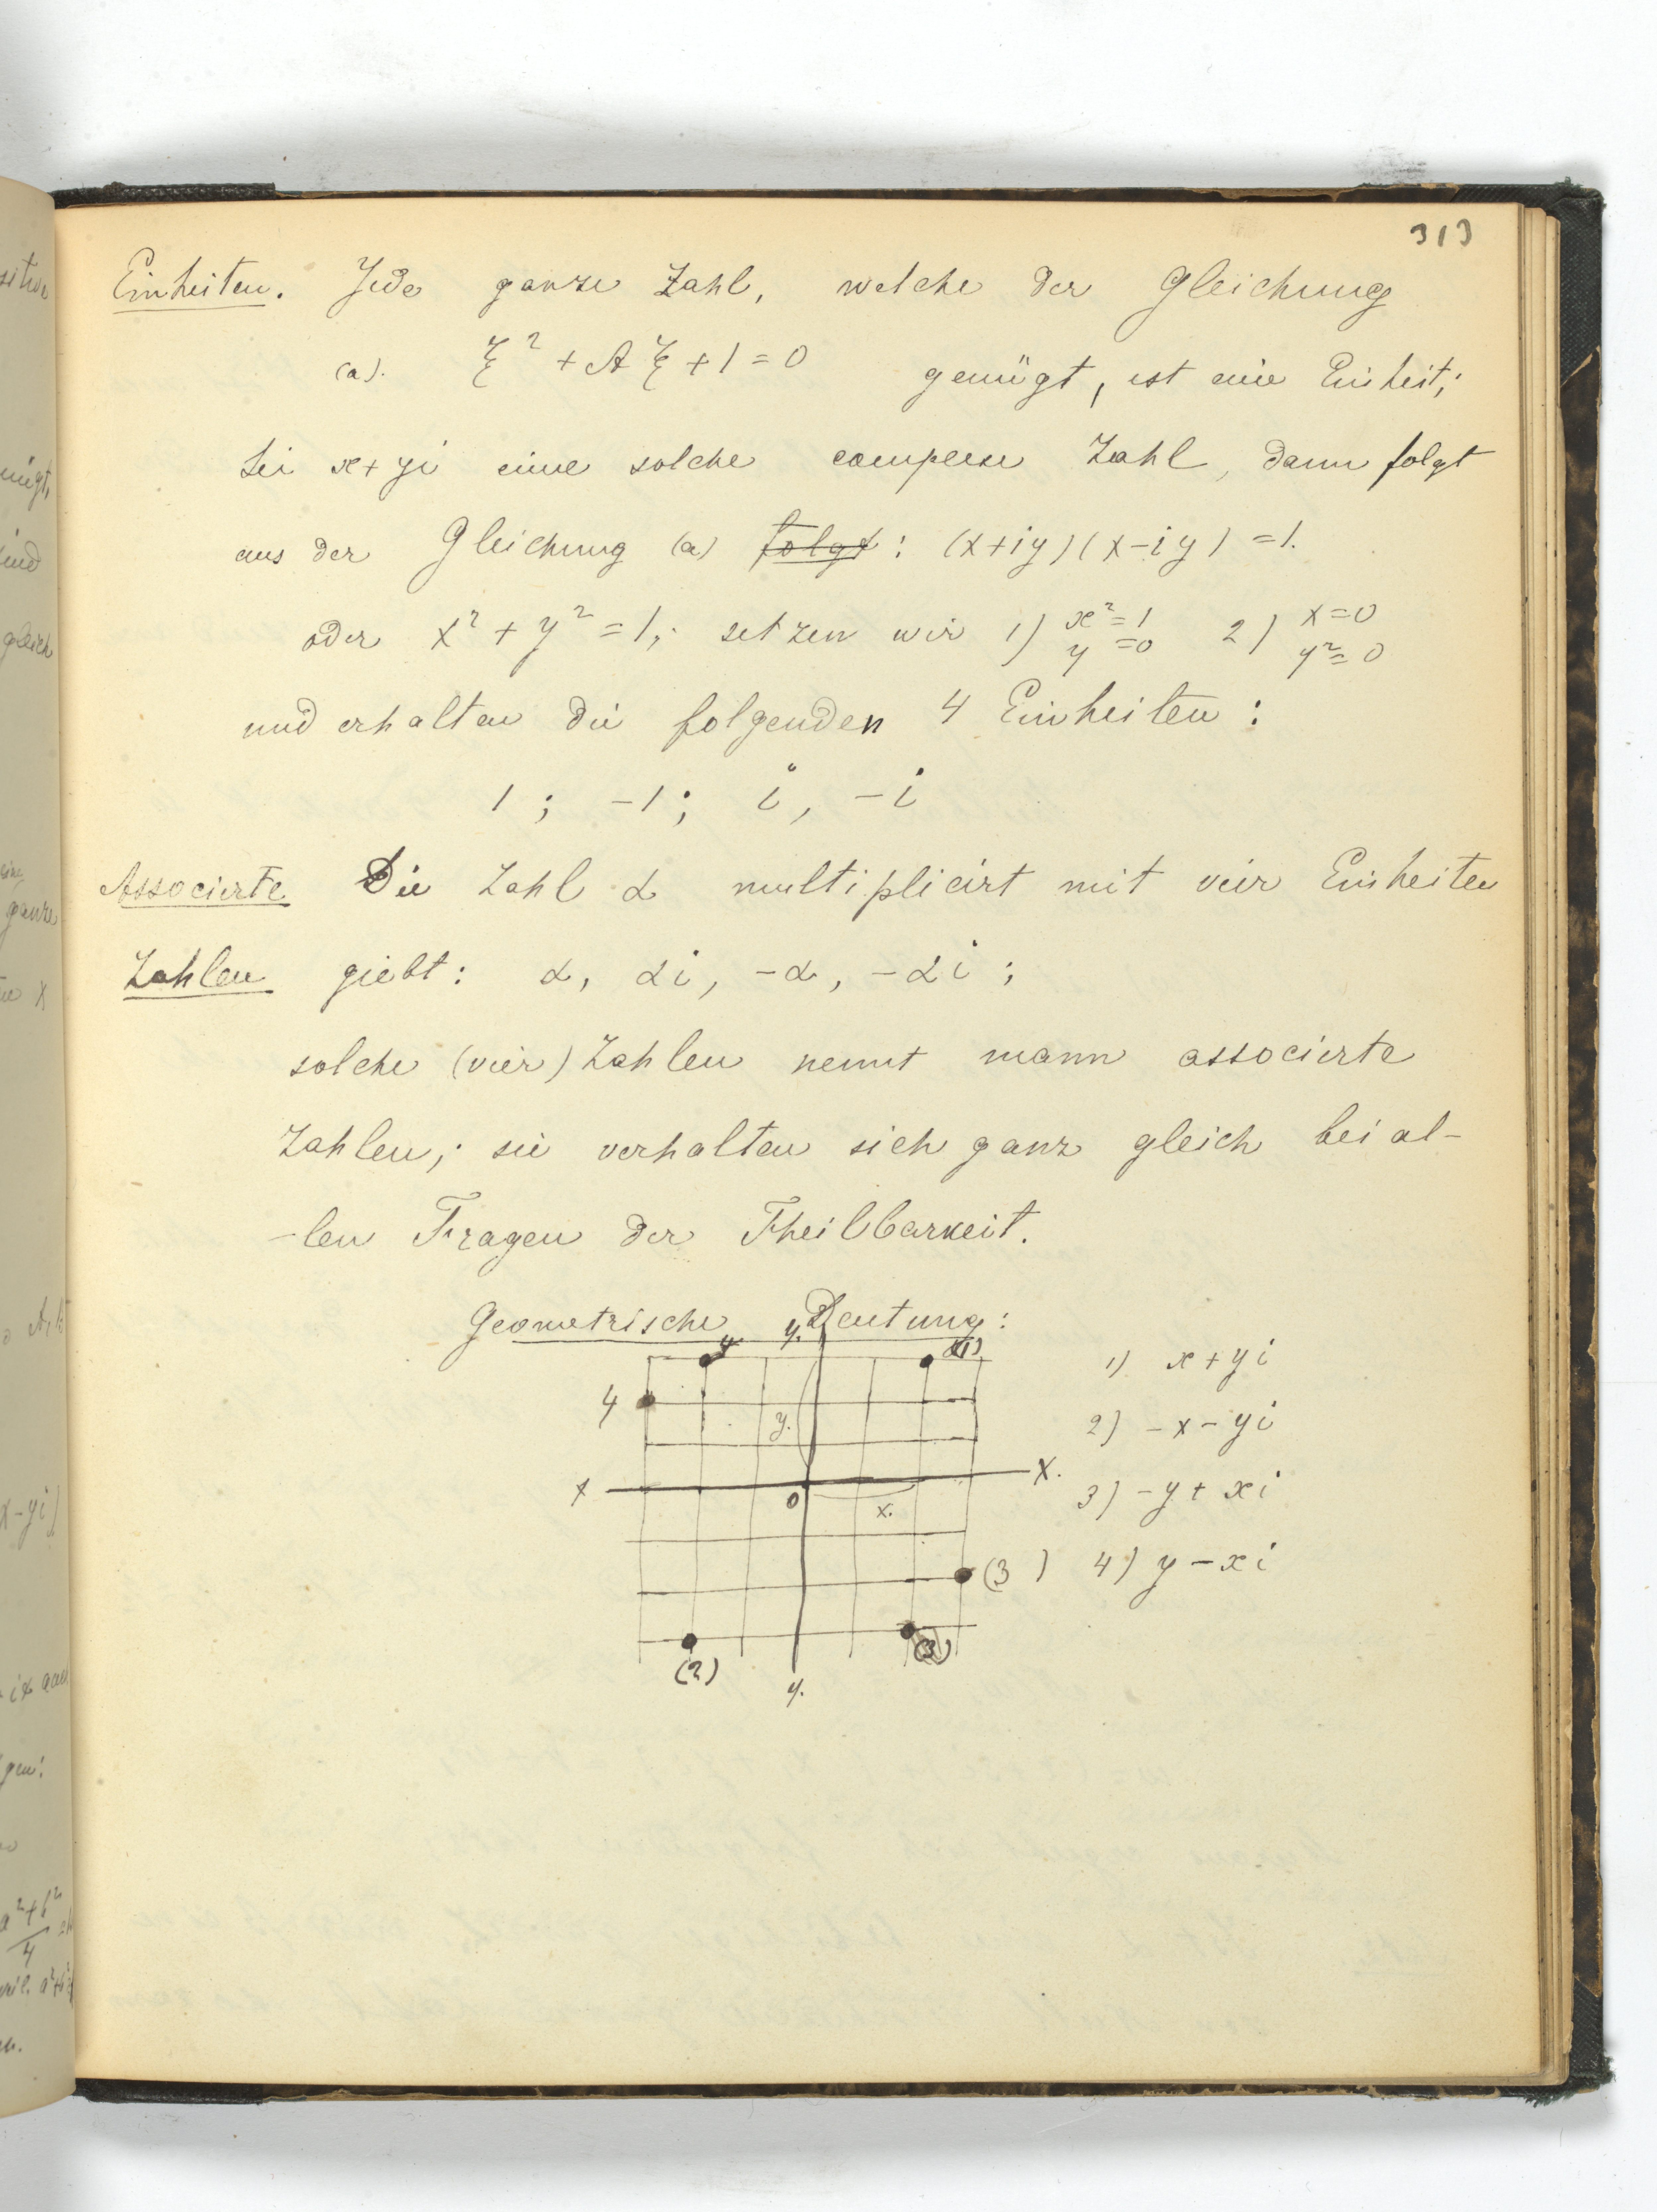 313
Einheiten. Jede ganze Zahl, welche der Gleichung
(a). ξ² + Aξ + 1 = 0 genügt, ist eine Einheit;
Sei x + yi eine solche complexe Zahl, dann folgt
aus der Gleichung (a) folgt: (x+iy)(x-iy) = 1.
oder x² + y² = 1; setzen wir 1) x² = 1 y = 0 2) x = 0 y² = 0
und erhalten die folgenden 4 Einheiten:
1; -1; i, -i
Associerte Die Zahl α multiplicirt mit vier Einheiten
Zahlen giebt: α, αi, -α, -αi;
solche (vier) Zahlen nennt mann associerte
Zahlen; sie verhalten sich ganz gleich bei al-
-len Fragen der Theilbarkeit.
Geometrische Deutung:
y.
4
(1)
1) x + yi
4
y.
2) -x - yi
x
x.
0
x.
3) -y + xi
(3)
4) y - xi
(2)
(3)
y.